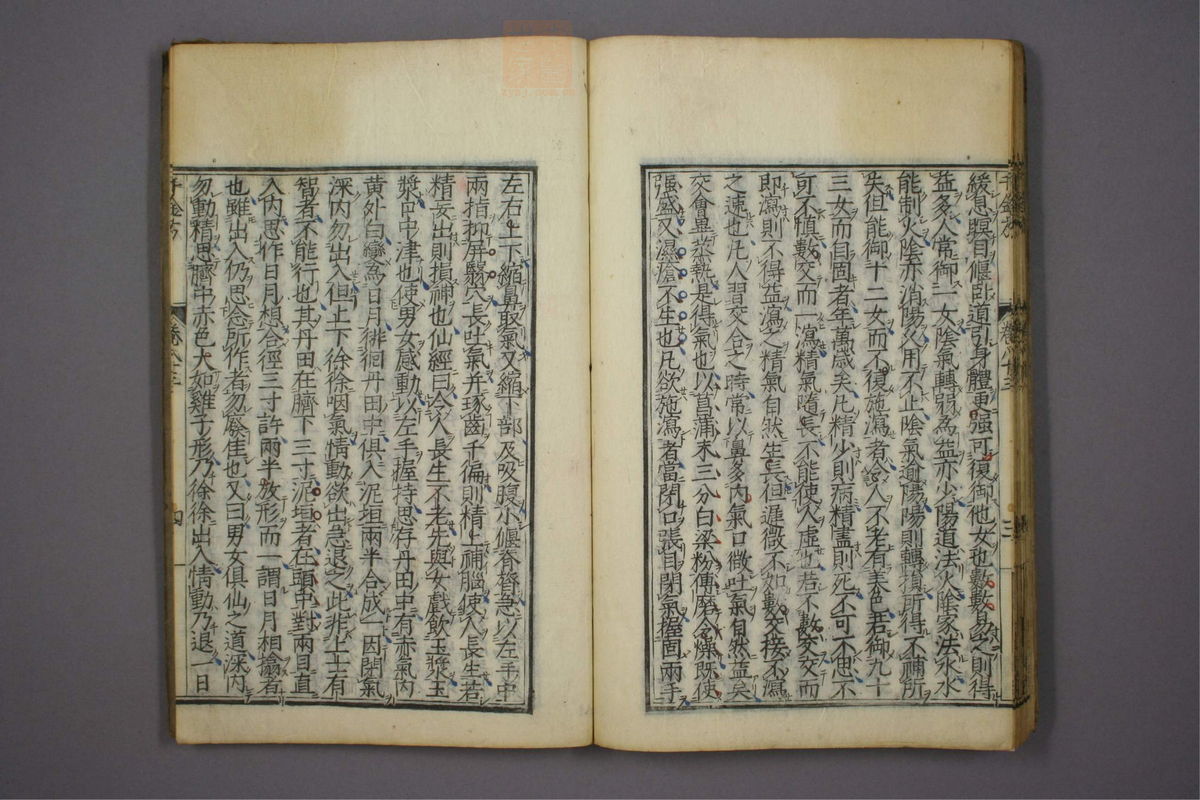 緩息瞑目偃卧道引身體更强可復御他女也數數易之則得
益多人常御一女陰氣轉弱爲益亦少陽道法火陰家法水水
能制火陰亦消陽久用不止陰氣逾陽陽則轉損所得不補所
失但能御十二女而不復施瀉者令人不老有美色若御九十
三女而自固者年萬歲矣凡精少則病精盡則死不可不思不
可不愼數交而一瀉精氣隨長不能使人虛也若不數交交而
即瀉則不得益瀉之精氣自然生長但遲微不如數交接不瀉
之速也凡人習交合之時常以鼻多內氣口微吐氣自然益矣
交會畢蒸熱是得氣也以菖蒲末三分白梁粉傅摩令燥旣使
强盛又濕瘡不生也凡欲施瀉者當閉口張目閉氣握固兩手
千金方 卷八十三 三
左右上下縮鼻取氣又縮下部及吸腹小偃脊膂急以左手中
兩指抑屏翳穴長吐氣并琢齒千徧則精上補腦使人長生若
精妄出則損神也仙經曰令人長生不老先與女戲飮玉漿玉
漿口中津也使男女感動以左手握持思存丹田中有赤氣內
黃外白變爲日月徘徊丹田中俱入泥垣兩半合成一因閉氣
深內勿出入但上下徐徐咽氣情動欲出急退之此非上士有
智者不能行也其丹田在臍下三寸泥垣者在頭中對兩目直
入內思作日月想合徑三寸許兩半放形而一謂日月相擒者
也雖出入仍思念所作者勿廢佳也又曰男女俱仙之道深內
勿動精思臍中赤色大如雞子形乃徐徐出入情動乃退一日
千金方 卷八十三 四